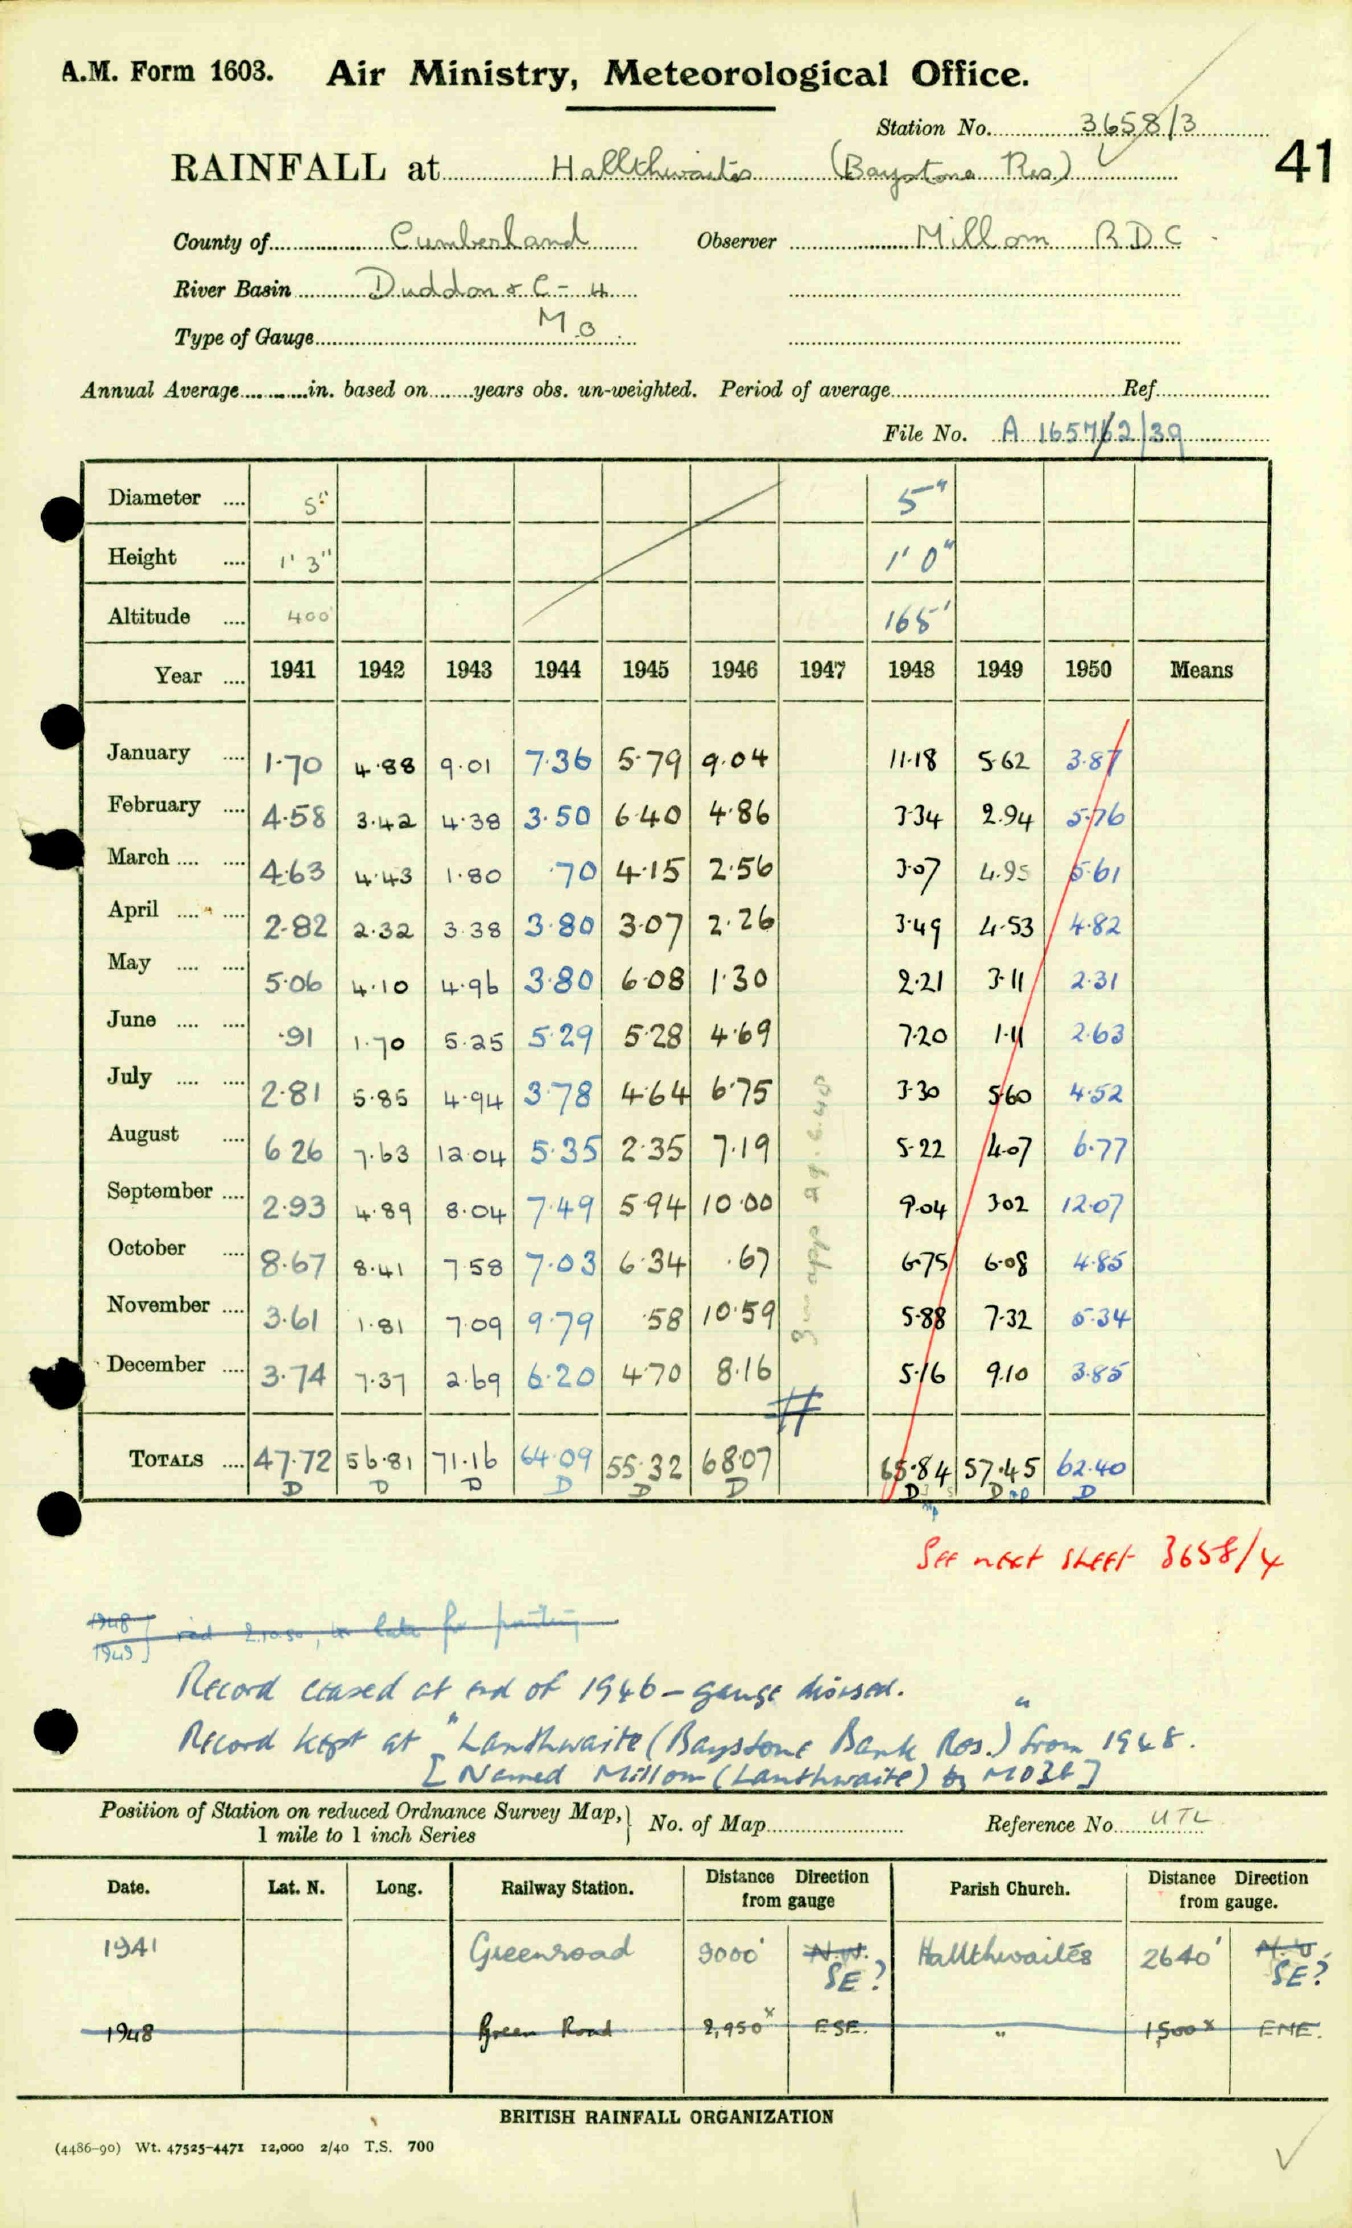 A.M. Form 1603. Air Ministry, Meteorological Office.
Station No. 3658/3
41
RAINFALL at Hallthwaites (Baystone Res.)
County of Cumberland Observer Millom R D C
River Basin Duddon & C - 4
Type of Gauge MO
Annual Average in. based on years obs. un-weighted. Period of average Ref.
File No. A 1657/62/39
Diameter 5" 5"
Height 1' 3" 1' 0"
Altitude 400' 165'
Year 1941 1942 1943 1944 1945 1946 1947 1948 1949 1950 Means
January 1.70 4.88 9.01 7.36 5.79 9.04 11.18 5.62 3.87
February 4.58 3.42 4.38 3.50 6.40 4.86 3.34 2.94 5.76
March 4.63 4.43 1.80 .70 4.15 2.56 3.07 4.95 5.61
April 2.82 2.32 3.38 3.80 3.07 2.26 3.49 4.53 4.82
May 5.06 4.10 4.96 3.80 6.08 1.30 2.21 3.11 2.31
June .91 1.70 5.25 5.29 5.28 4.69 7.20 1.11 2.63
July 2.81 5.85 4.94 3.78 4.64 6.75 3.30 5.60 4.52
August 6.26 7.63 12.04 5.35 2.35 7.19 5.22 4.07 6.77
September 2.93 4.89 8.04 7.49 5.94 10.00 9.04 3.02 12.07
October 8.67 8.41 7.58 7.03 6.34 .67 6.75 6.08 4.85
November 3.61 1.81 7.09 9.79 .58 10.59 5.88 7.32 5.34
December 3.74 7.37 2.69 6.20 4.70 8.16 5.16 9.10 3.85
TOTALS 47.72 56.81 71.16 64.09 55.32 68.07 65.84 57.45 62.40
D D D D D D D D D
See next sheet 3658/4
1948
1949 } recd 2.10.50, too late for printing
Record ceased at end of 1946 - gauge disused.
Record kept at "Lanthwaite (Baystone Bank Res.)" from 1948.
[Named Millom (Lanthwaite) by MO3b]
Position of Station on reduced Ordnance Survey Map, } No. of Map Reference No. UTL
1 mile to 1 inch Series
Date. Lat. N. Long. Railway Station. Distance Direction from gauge Parish Church. Distance Direction from gauge.
1941 Greenroad 9000' N.W. SE? Hallthwaites 2640' N.W. SE?
1948 Green Road 2,950x ESE. " 1,500x ENE.
BRITISH RAINFALL ORGANIZATION
(4486-90) Wt. 47525-4471 12,000 2/40 T.S. 700